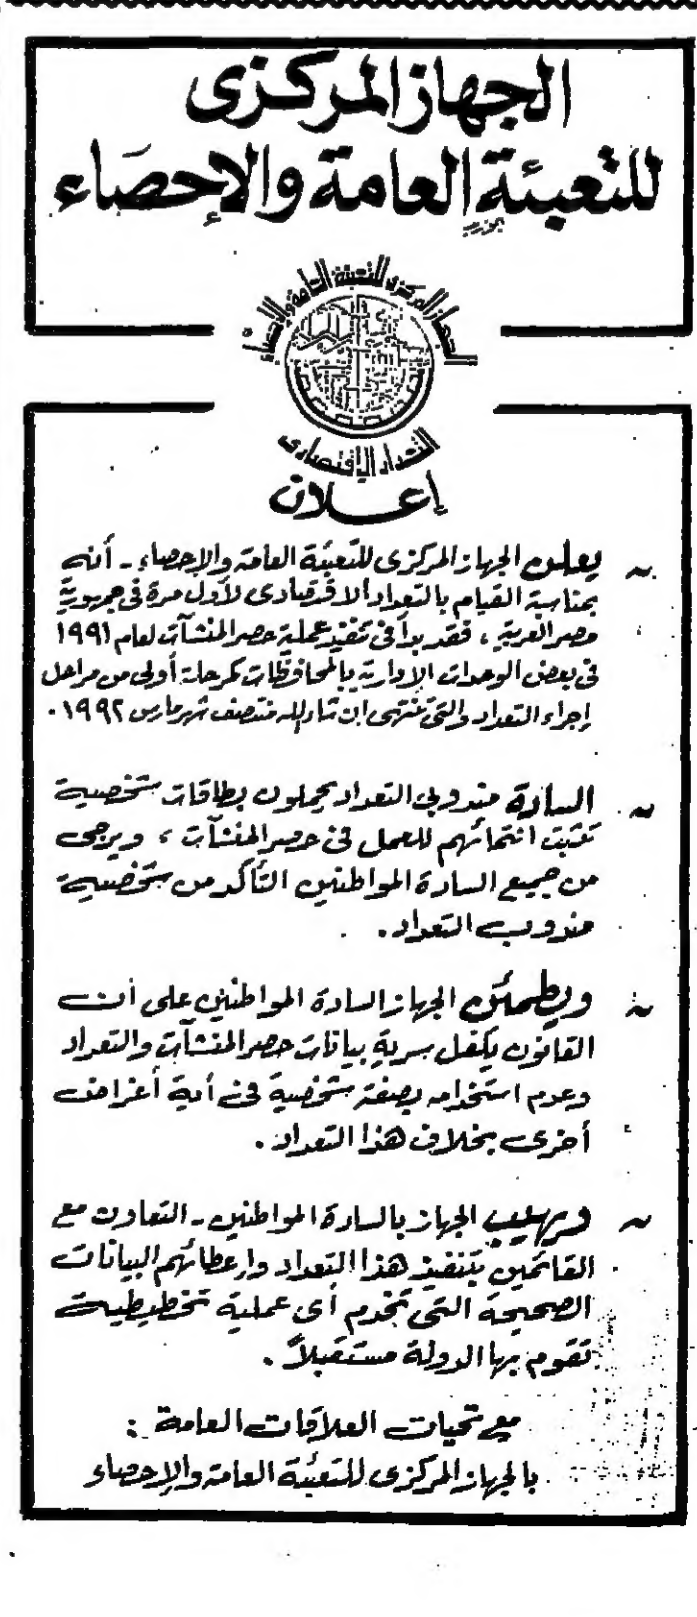 الجهاز المركزى
للتعبئة العامة والإحصاء
الجهاز المركزى للتعبئة العامة والإحصاء
التعداد الإقتصادى
إعلان
~ يعلن الجهاز المركزى للتعبئة العامة والإحصاء - أنه
بمناسبة القيام بالتعداد الاقتصادى لأول مرة فى جمهورية
مصر العربية ، فقد بدأ فى تنفيذ عملية حصر المنشآت لعام ١٩٩١
فى بعض الوحدات الإدارية بالمحافظات كمرحلة أولى من مراحل
إجراء التعداد والتى تنتهى ان شاء الله منتصف شهر مارس ١٩٩٢ .
~ السادة مندوبى التعداد يحملون بطاقات شخصية
تثبت انتمائهم للعمل فى حصر المنشآت ، ويرجى
من جميع السادة المواطنين التأكد من شخصية
مندوب التعداد .
~ ويطمئن الجهاز السادة المواطنين على أن
القانون يكفل سرية بيانات حصر المنشآت والتعداد
وعدم استخدامه بصفة شخصية فى أية أغراض
أخرى بخلاف هذا التعداد .
~ ويهيب الجهاز بالسادة المواطنين - التعاون مع
القائمين بتنفيذ هذا التعداد وإعطائهم البيانات
الصحيحة التى تخدم أى عملية تخطيطية
تقوم بها الدولة مستقبلاً .
مع تحيات العلاقات العامة :
بالجهاز المركزى للتعبئة العامة والإحصاء